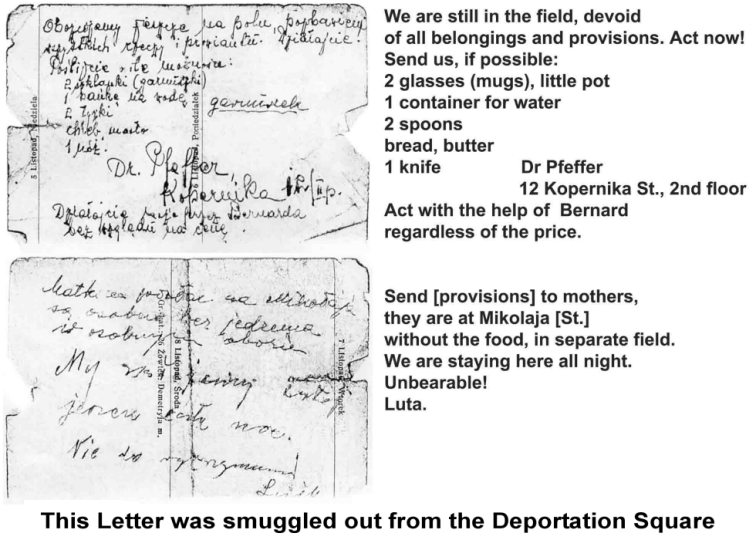 Obozujemy jeszcze na polu, pozbawieni
wszystkich rzeczy i prowiantu. Działajcie.
Poślijcie o ile możliwe:
2 szklanki (garnuszki)
1 bańkę na wodę
garnuszek
2 łyżki
chleb masło
1 nóż.
Dr. Pfeffer,
Kopernika
Działajcie przez Bernarda
bez względu na cenę.
5 Listopad, Niedziela
6 Listopad, Poniedziałek
We are still in the field, devoid
of all belongings and provisions. Act now!
Send us, if possible:
2 glasses (mugs), little pot
1 container for water
2 spoons
bread, butter
1 knife Dr Pfeffer
12 Kopernika St., 2nd floor
Act with the help of Bernard
regardless of the price.
na Mikołaja
są osobno bez jedzenia
w osobnym
My
całą noc.
Nie do
26 Żowic. Demetryja m.
8 Listopad, Środa
7 Listopad, Wtorek
Send [provisions] to mothers,
they are at Mikolaja [St.]
without the food, in separate field.
We are staying here all night.
Unbearable!
Luta.
This Letter was smuggled out from the Deportation Square